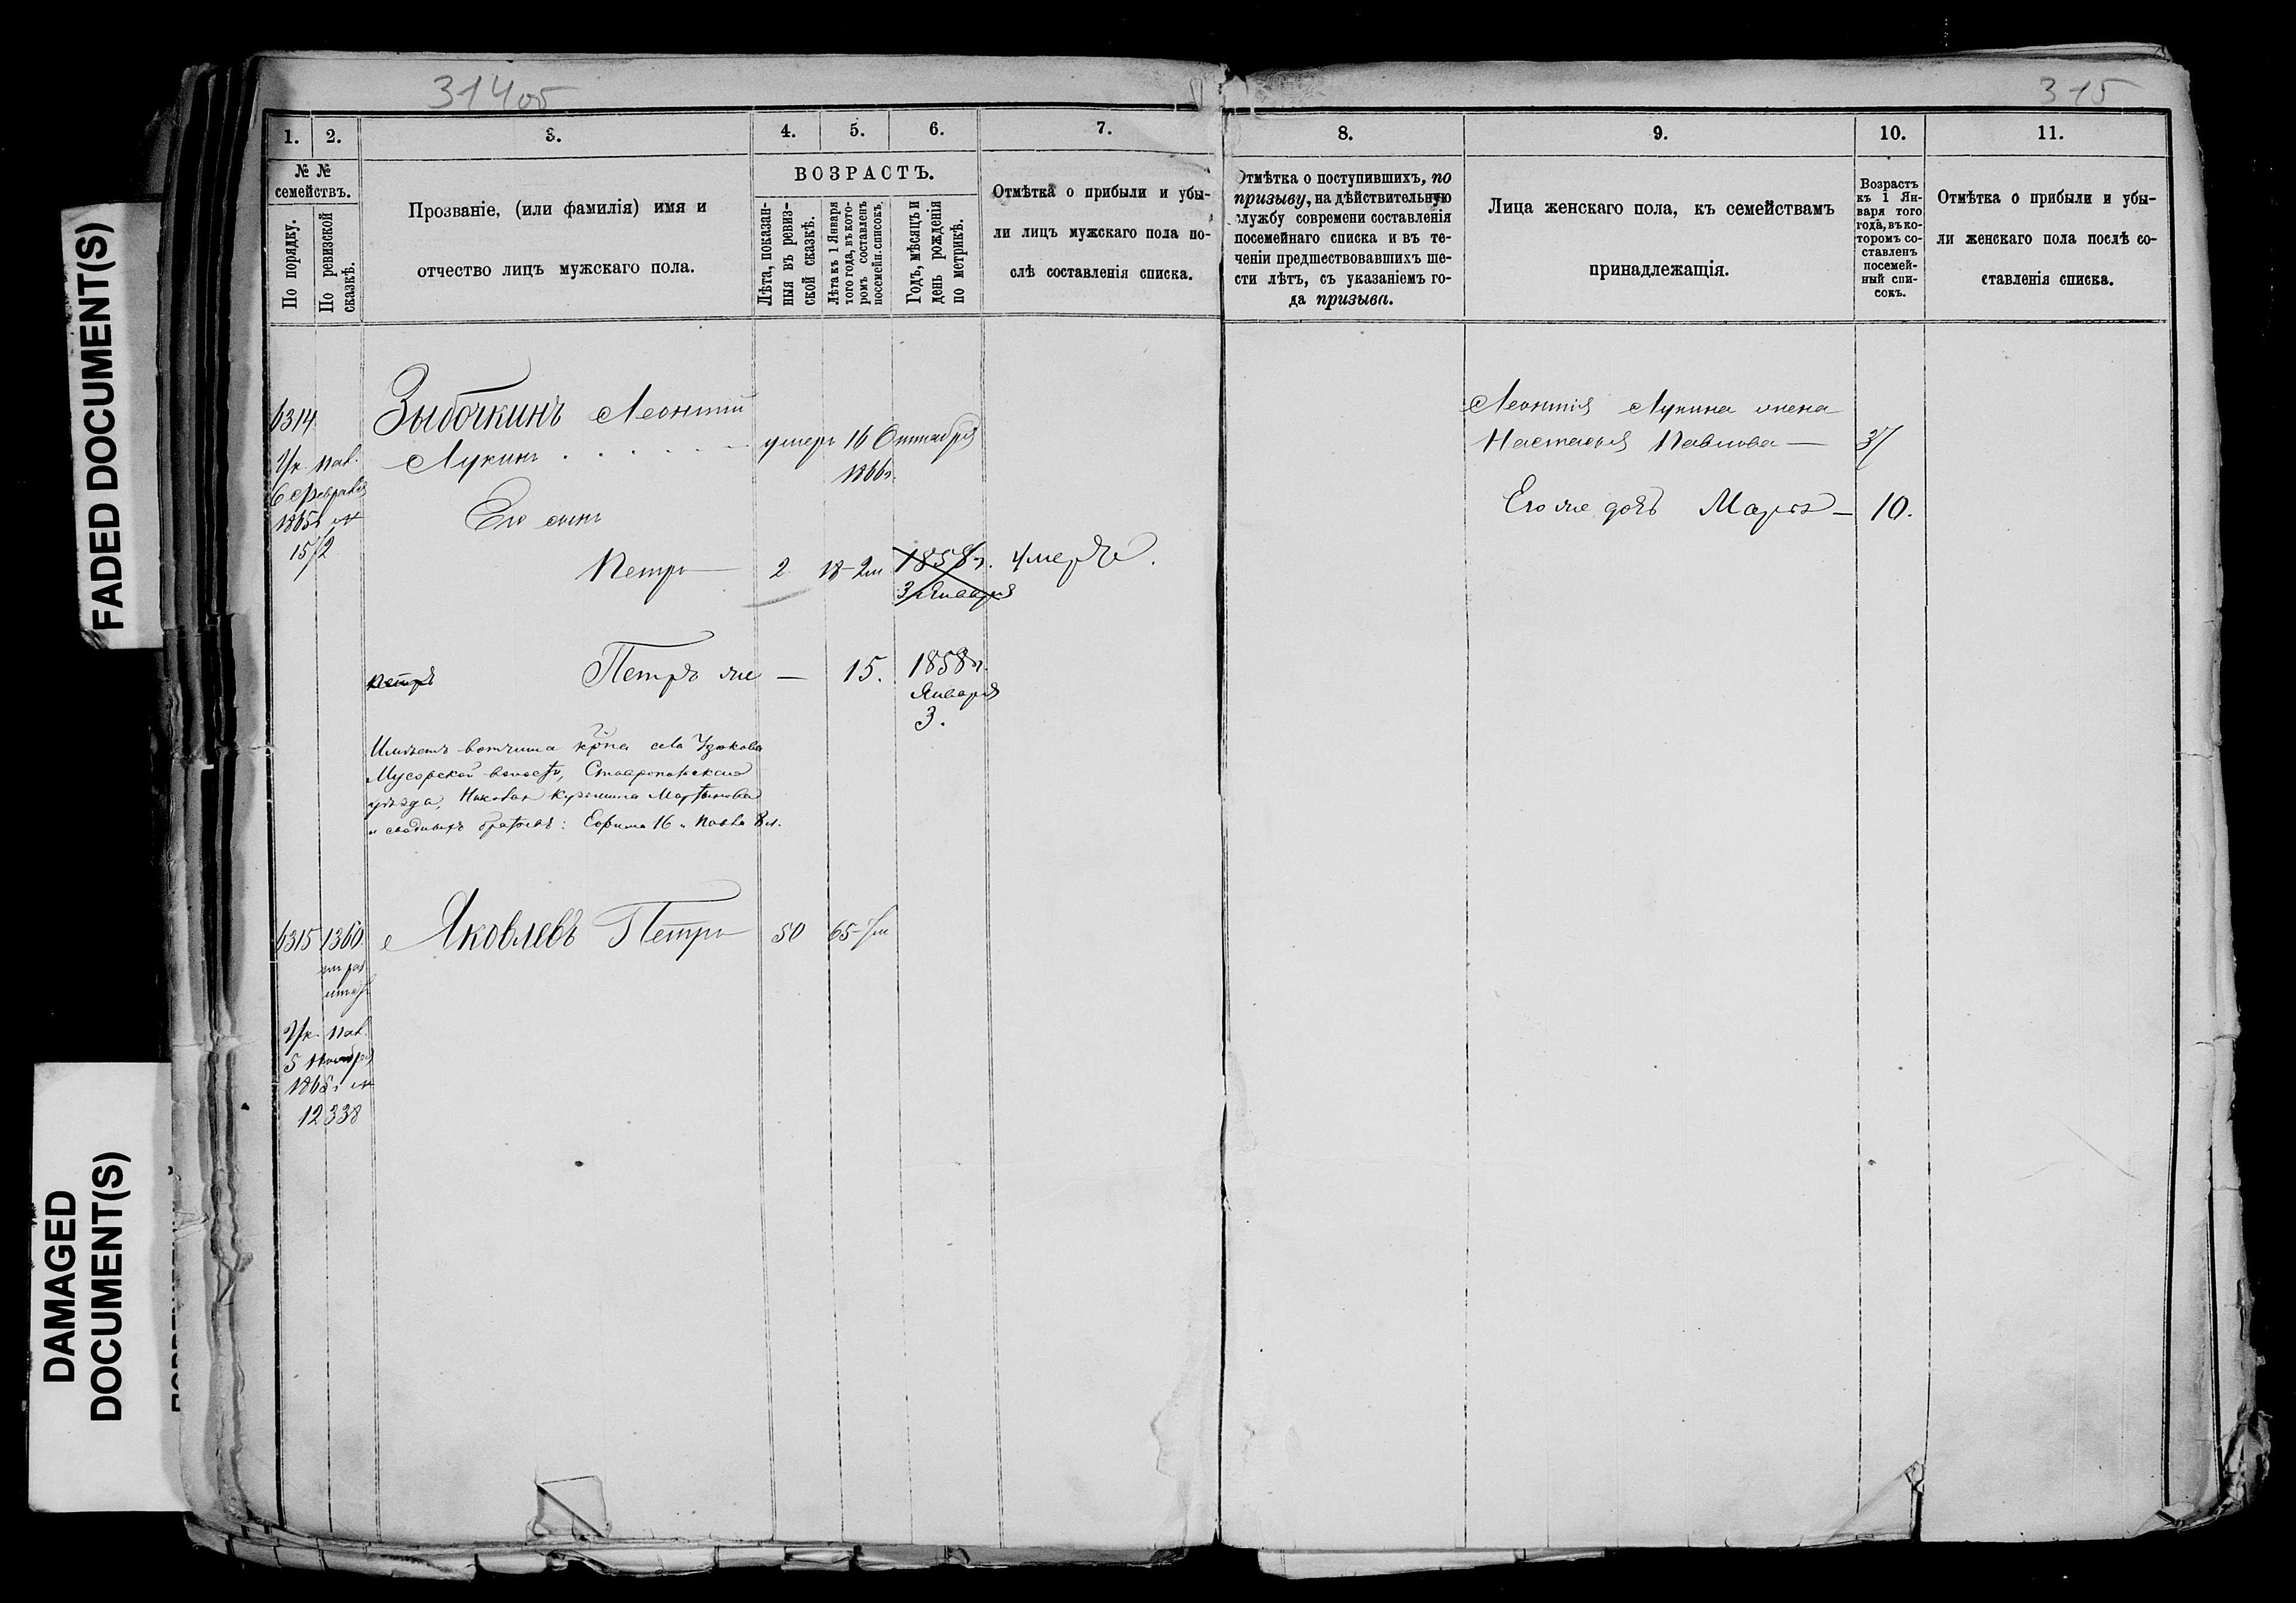 314об
315
FADED DOCUMENT(S)
DAMAGED
DOCUMENT(S)
1.
2.
3.
4.
5.
6.
7.
8.
9.
10.
11.
№ №
семействъ.
По порядку.
По ревизской
сказкѣ.
Прозваніе, (или фамилія) имя и
отчество лицъ мужскаго пола.
ВОЗРАСТЪ.
Лѣта, показан-
ныя въ ревиз-
ской сказкѣ.
Лѣта къ 1 Января
того года, въ кото-
ромъ составленъ
посемейн. списокъ.
Годъ, мѣсяцъ и
день рожденія
по метрикѣ.
Отмѣтка о прибыли и убы-
ли лицъ мужскаго пола по-
слѣ составленія списка.
Отмѣтка о поступившихъ, по
призыву, на дѣйствительную
службу современи составленія
посемейнаго списка и въ те-
ченіи предшествовавшихъ ше-
сти лѣтъ, съ указаніемъ го-
да призыва.
Лица женскаго пола, къ семействамъ
принадлежащія.
Возрастъ
къ 1 Ян-
варя того
года, въ ко-
торомъ со-
ставленъ
посемей-
ный спи-
сокъ.
Отмѣтка о прибыли и убы-
ли женскаго пола послѣ со-
ставленія списка.
6314
Ук. пал.
6 Февраля
1865г №
1572
Зыбочкинъ Леонтій
Лукинъ
умеръ 16 Октября
1866г.
Его сынъ
Петръ 2 18-2м 1858г. умеръ.
3 Января
петръ
Петръ же — 15. 1858г.
Января
3.
Имѣетъ вотчима кр-на села Узюкова
Мусорской волости, Ставропольскаго
уѣзда, Кузьмина Мартынова
и сводныхъ братьевъ: Ефима 16 и Павла 8 л.
Леонтія Лукина жена
Настасья Павлова — 37
Его же дочь Марья — 10.
6315 1360 Яковлевъ Петръ 50 65-7м
Ук. пал.
5 Ноября
1868г №
12338